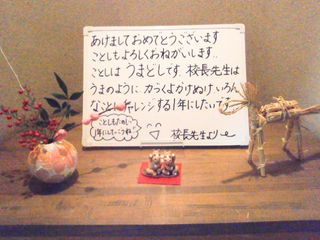 あけましておめでとうございます
ことしもよろしくおねがいします。
ことしは うまどしです。校長先生は
うまのように 力づよくかけぬけ いろん
なことに チャレンジする1年にしたいです。
ことしもたのしい
1年にしましょうね
校長先生より